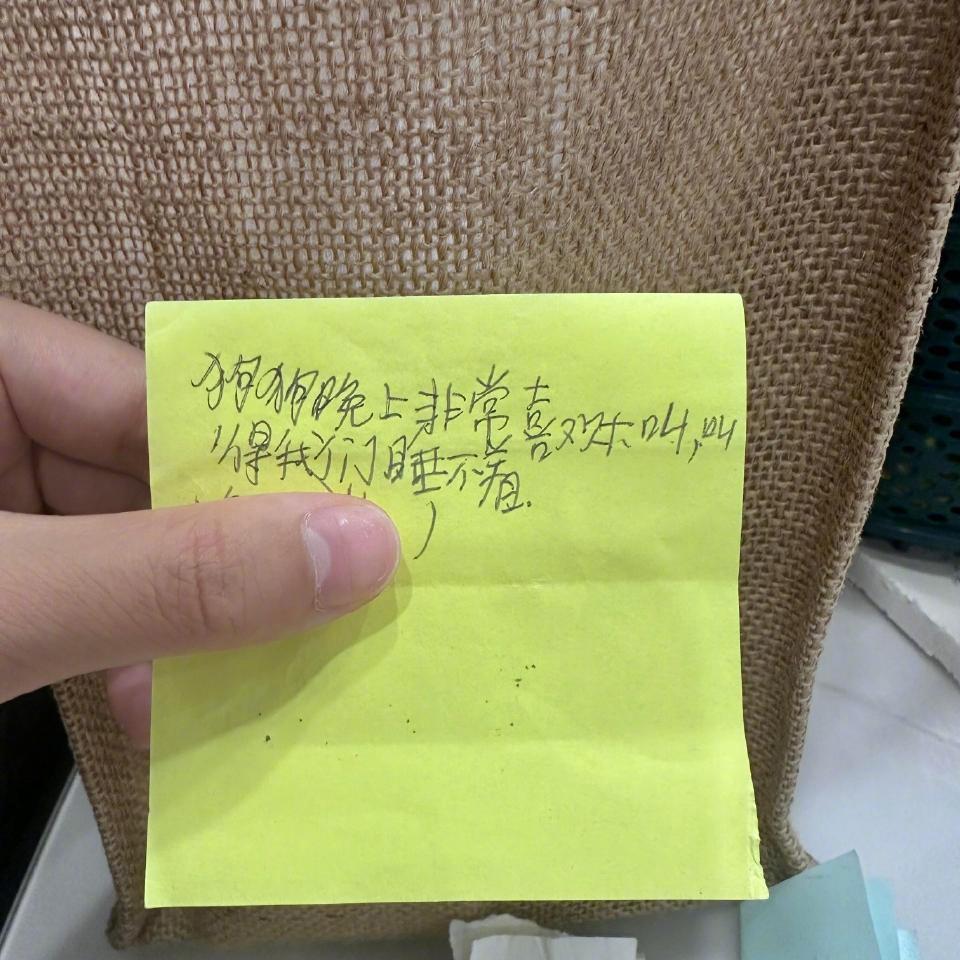 狗狗晚上非常喜欢大叫,叫
得我们睡不着.